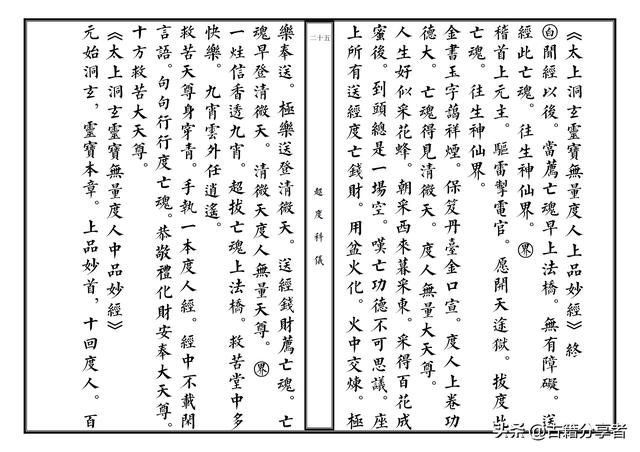 《太上洞玄靈寶無量度人上品妙經》終
白聞經以後。當薦亡魂早上法橋。無有障礙。送
經此亡魂。往生神仙界。界
稽首上元主。驅雷掣電官。愿開天途獄。拔度此
亡魂。往生神仙界。
金書玉字藹祥煙。保笈丹臺金口宣。度人上卷功
德大。亡魂得見清微天。度人無量大天尊。
人生好似采花蜂。朝采西來暮采東。采得百花成
蜜後。到頭總是一場空。嘆亡功德不可思議。座
上所有送經度亡錢財。用盆火化。火中交煉。極
二十五
超度科儀
樂奉送。極樂送登清微天。送經錢財薦亡魂。亡
魂早登清微天。清微天度人無量天尊。界
一炷信香透九宵。超拔亡魂上法橋。救苦堂中多
快樂。九宵雲外任逍遙。
救苦天尊身穿青。手執一本度人經。經中不載閑
言語。句句行行度亡魂。恭敬禮化財安奉大天尊。
十方救苦大天尊。
《太上洞玄靈寶無量度人中品妙經》
元始洞玄，靈寶本章。上品妙首，十回度人。百
头条 @古籍分享者